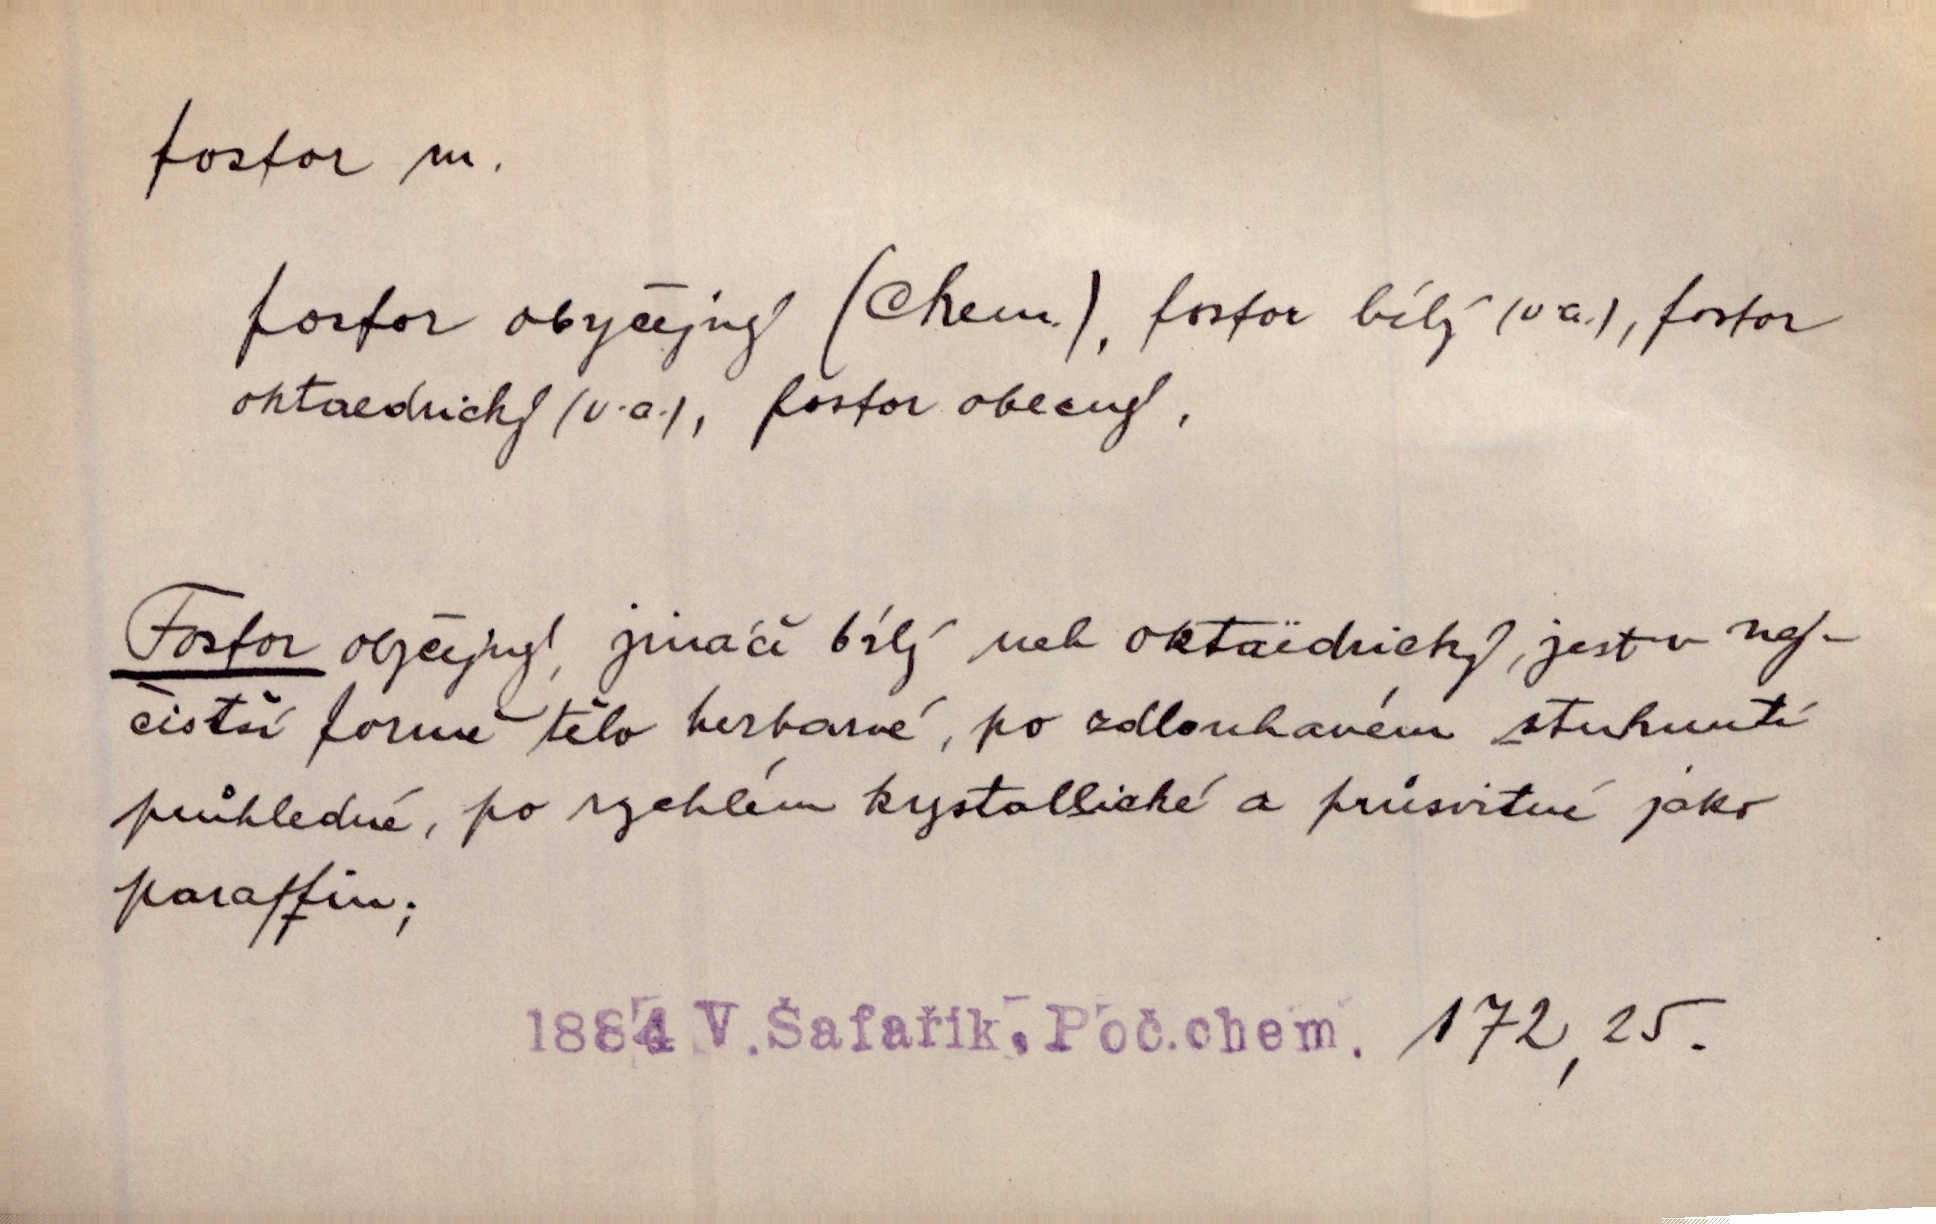 fosfor m.
fosfor obyčejný (Chem.), fosfor bílý (v.a.), fosfor
oktaedrický (v.a.), fosfor obecný,
Fosfor obyčejný, jináče bílý neb oktaëdrický, jest v nej-
čistší formě tělo bezbarvé, po zdlouhavém stuhnutí
průhledné, po rychlém krystallické a průsvitné jako
paraffin;
1884 V.Šafařík, Poč.chem. 172, 25.